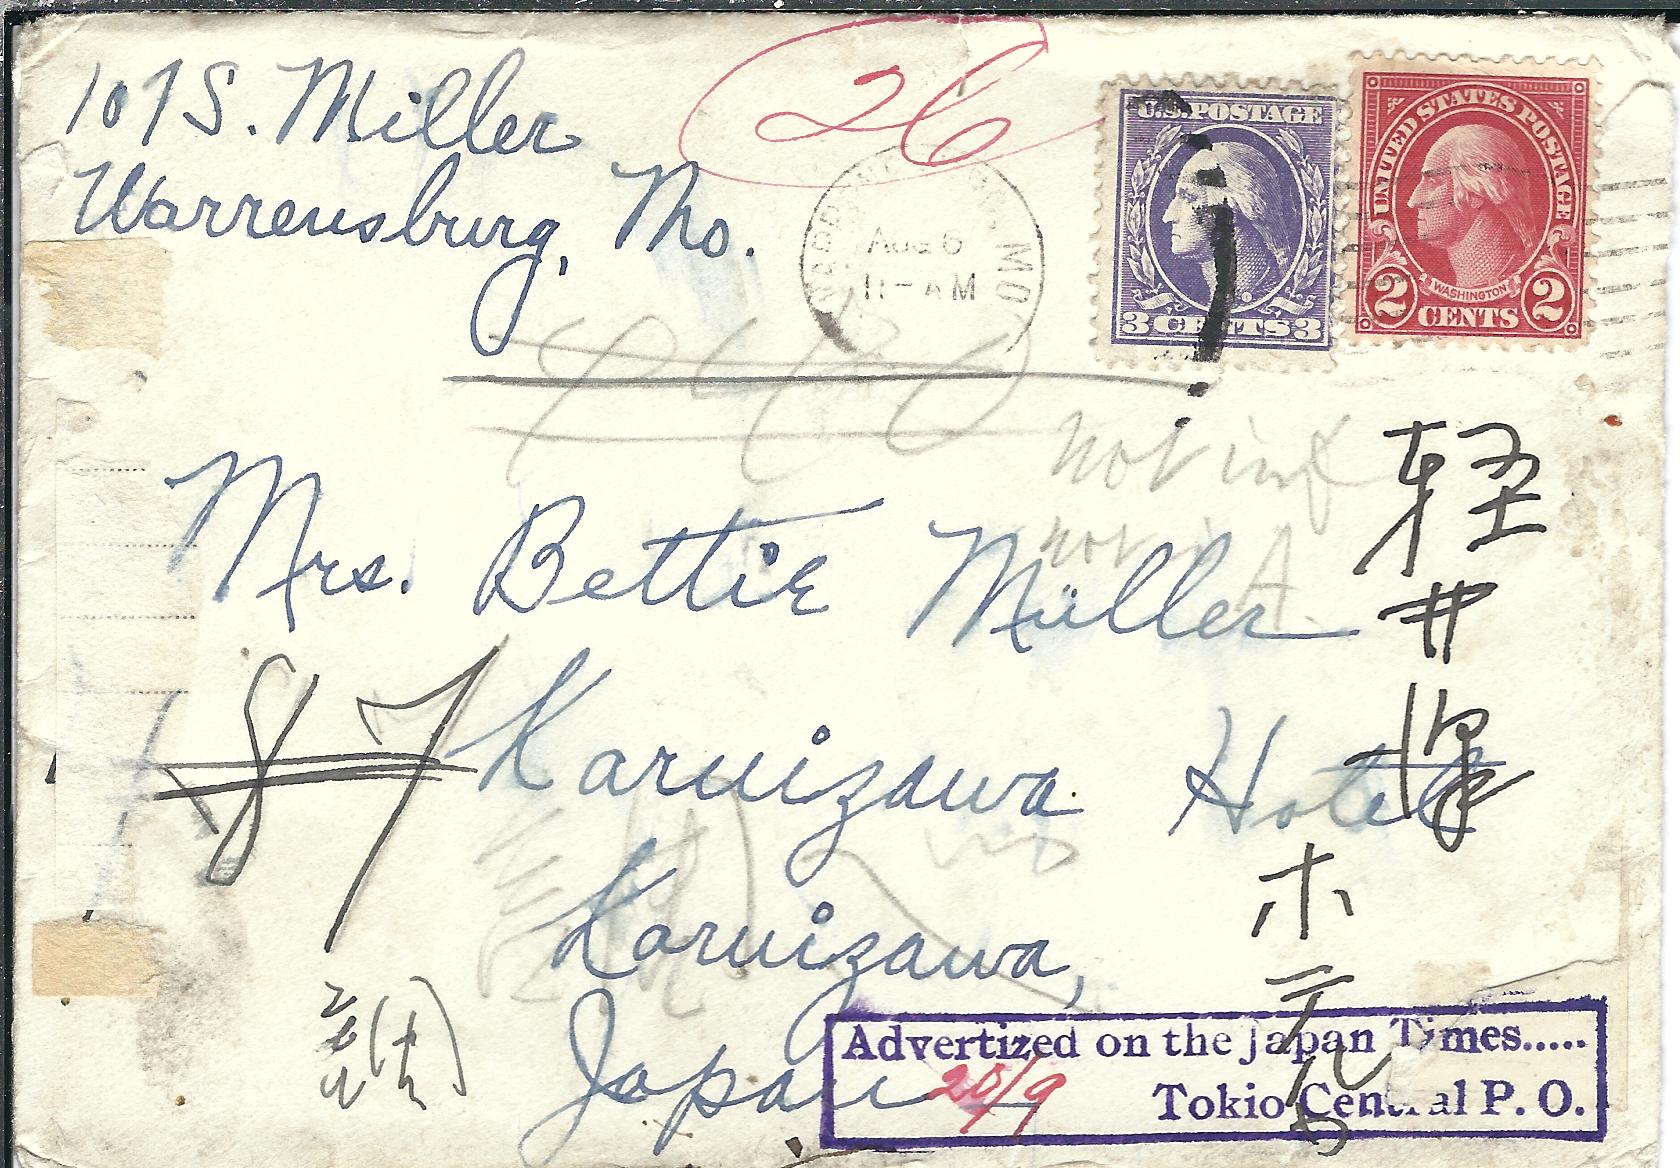 107 S. Miller
Warrensburg, Mo.
26
AUG 6
11-AM
MO
U.S. POSTAGE
3 CENTS 3
UNITED STATES POSTAGE
WASHINGTON
2 CENTS 2
not in
not in A
Mrs. Bettie Miller
Karuizawa Hotel
Karuizawa,
Japan
87
軽井澤ホテル
調
Advertized on the Japan Times.....
20/9
Tokio Central P. O.